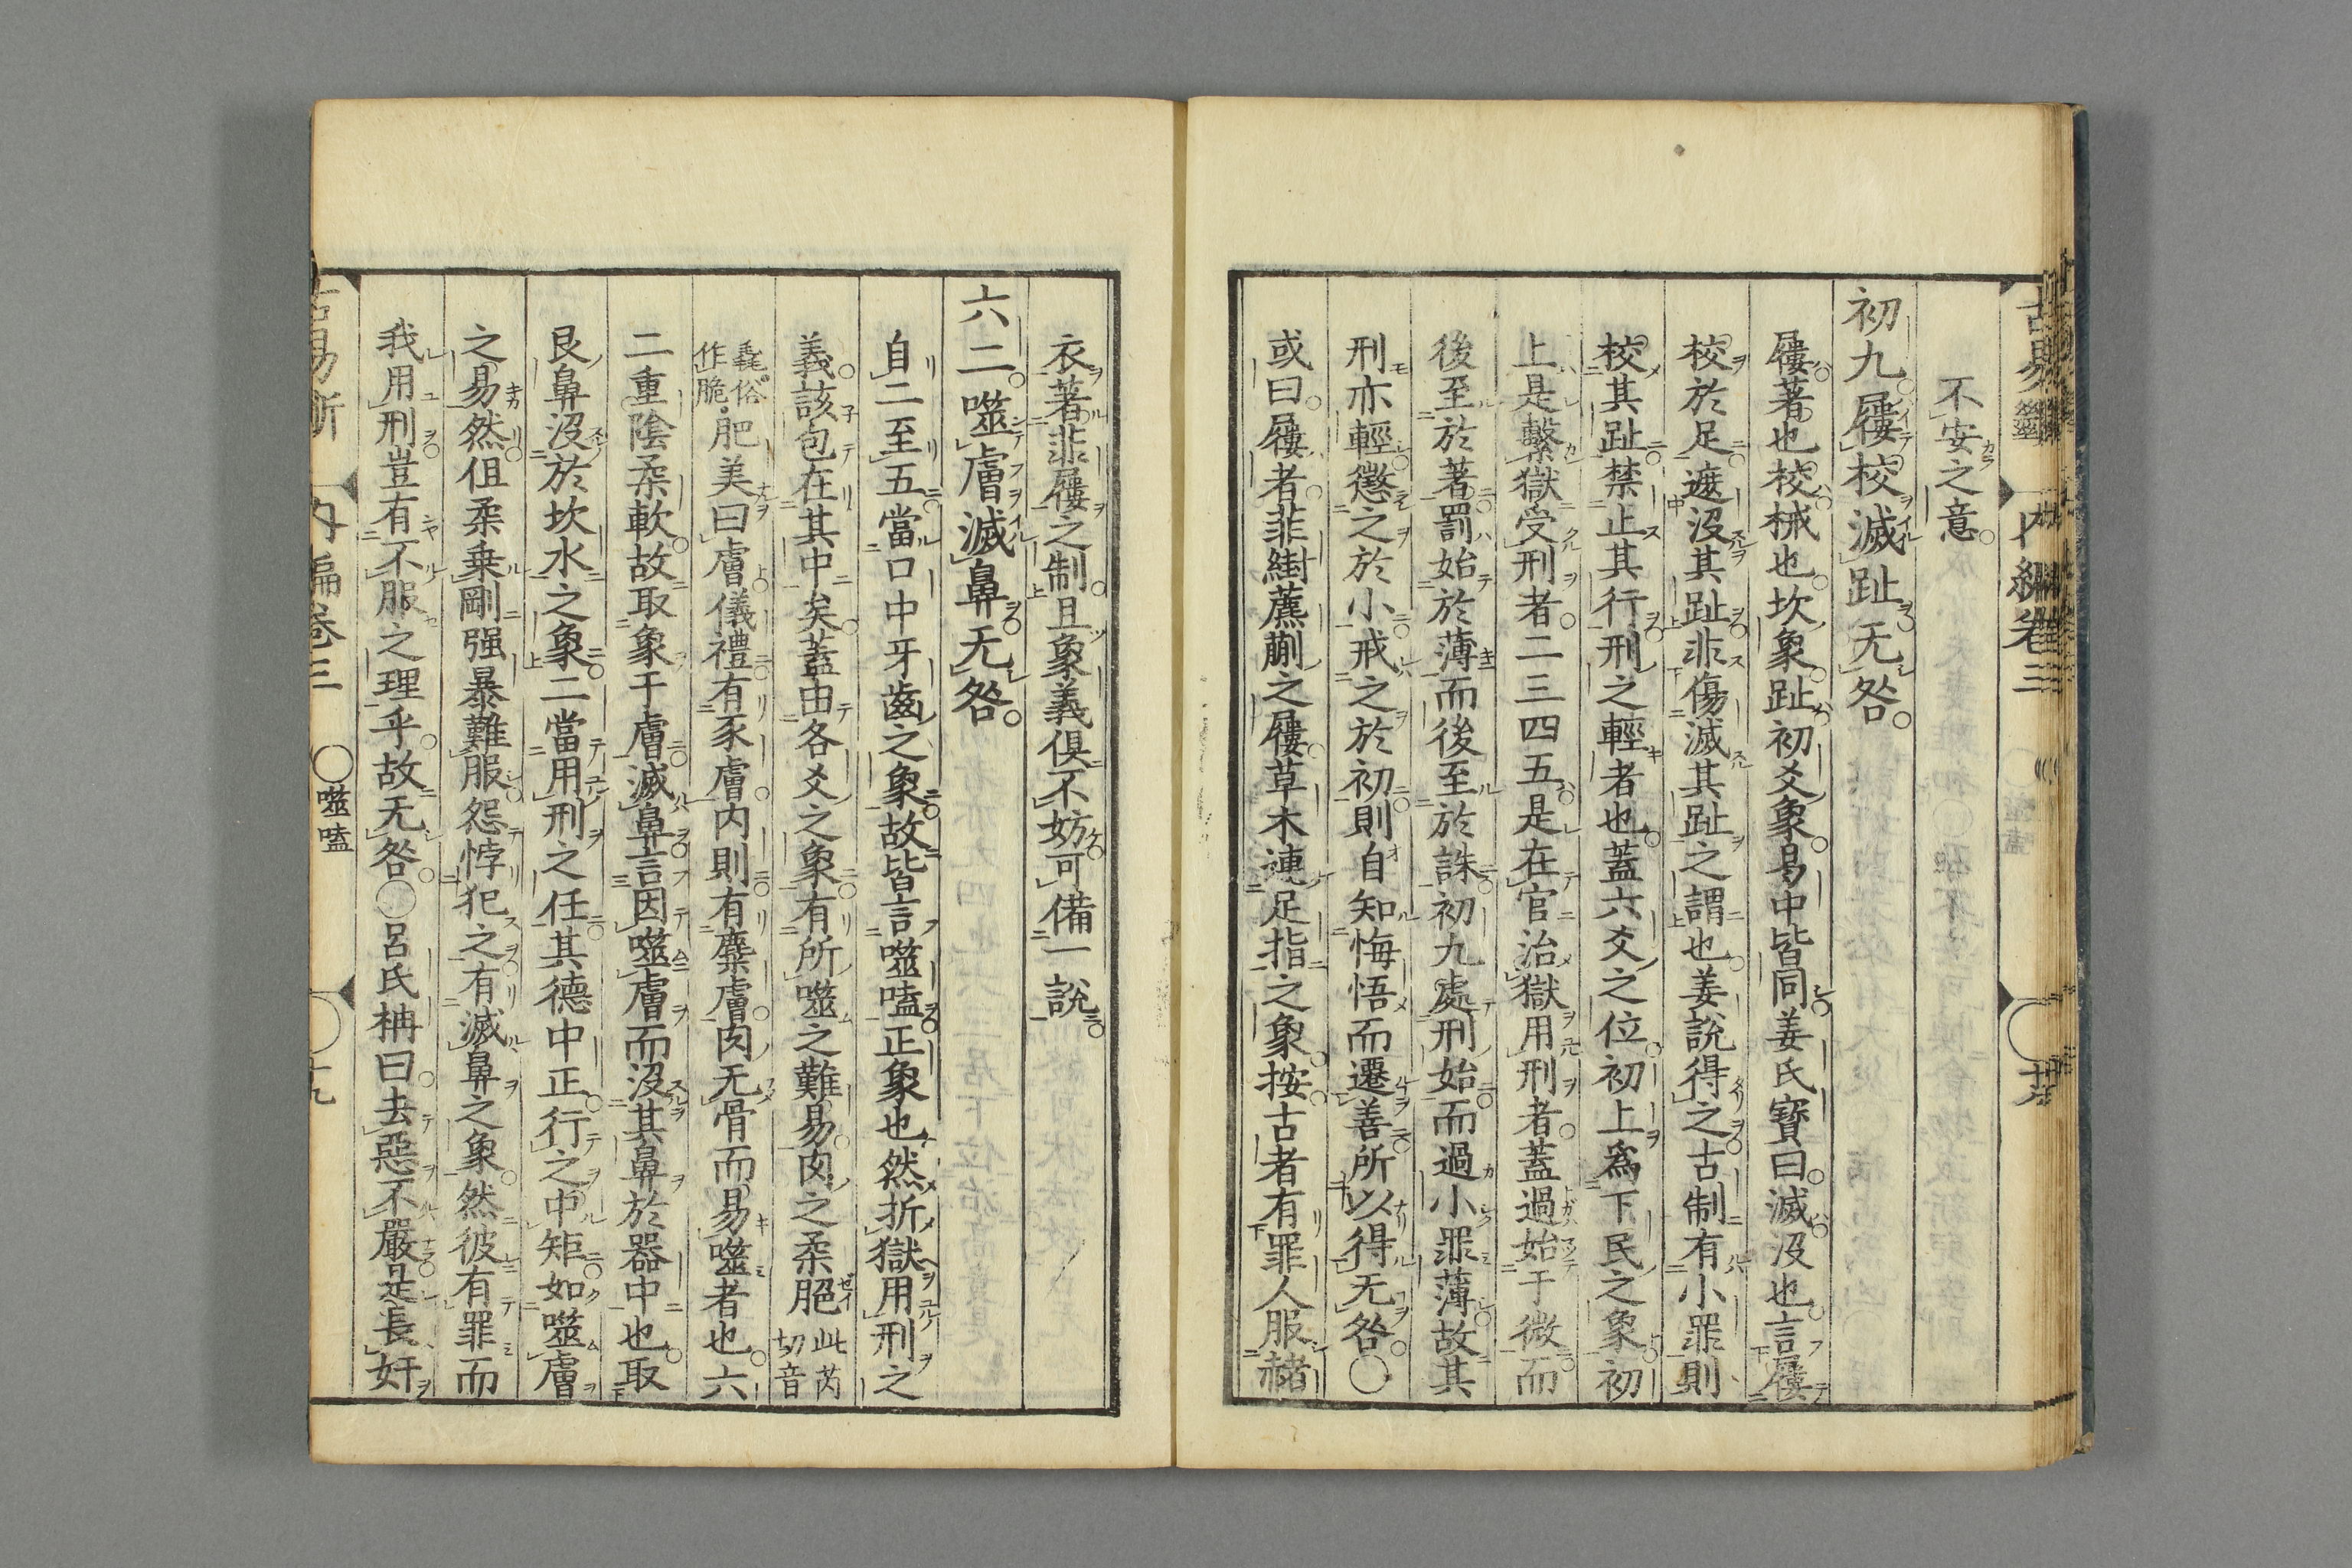 不安之意
初九屨校滅趾无咎
屨著也校械也坎象趾初爻象易中皆同姜氏寶曰滅沒也言屨
校於足遮沒其趾非傷滅其趾之謂也姜說得之古制有小罪則
校其趾禁止其行刑之輕者也蓋六爻之位初上爲下民之象初
上是繫獄受刑者二三四五是在官治獄用刑者蓋過始于微而
後至於著罰始於薄而後至於誅初九處刑始而過小罪薄故其
刑亦輕懲之於小戒之於初則自知悔悟而遷善所以得无咎〇
或曰屨者菲絓薦蒯之屨草木連足指之象按古者有罪人服赭
衣著菲屨之制且象義俱不妨可備一說
六二噬膚滅鼻无咎
自二至五當口中牙齒之象故皆言噬嗑正象也然折獄用刑之
義該包在其中矣蓋由各爻之象有所噬之難易肉之柔脃此芮切音
毳俗作脆肥美曰膚儀禮有豕膚內則有麋膚肉无骨而易噬者也六
二重陰柔軟故取象于膚滅鼻言因噬膚而沒其鼻於器中也取
艮鼻沒於坎水之象二當用刑之任其德中正行之中矩如噬膚
之易然但柔乗剛强暴難服怨悖犯之有滅鼻之象然彼有罪而
我用刑豈有不服之理乎故无咎〇呂氏柟曰去惡不嚴是長奸
古易斷 內編卷三 〇噬嗑 十九